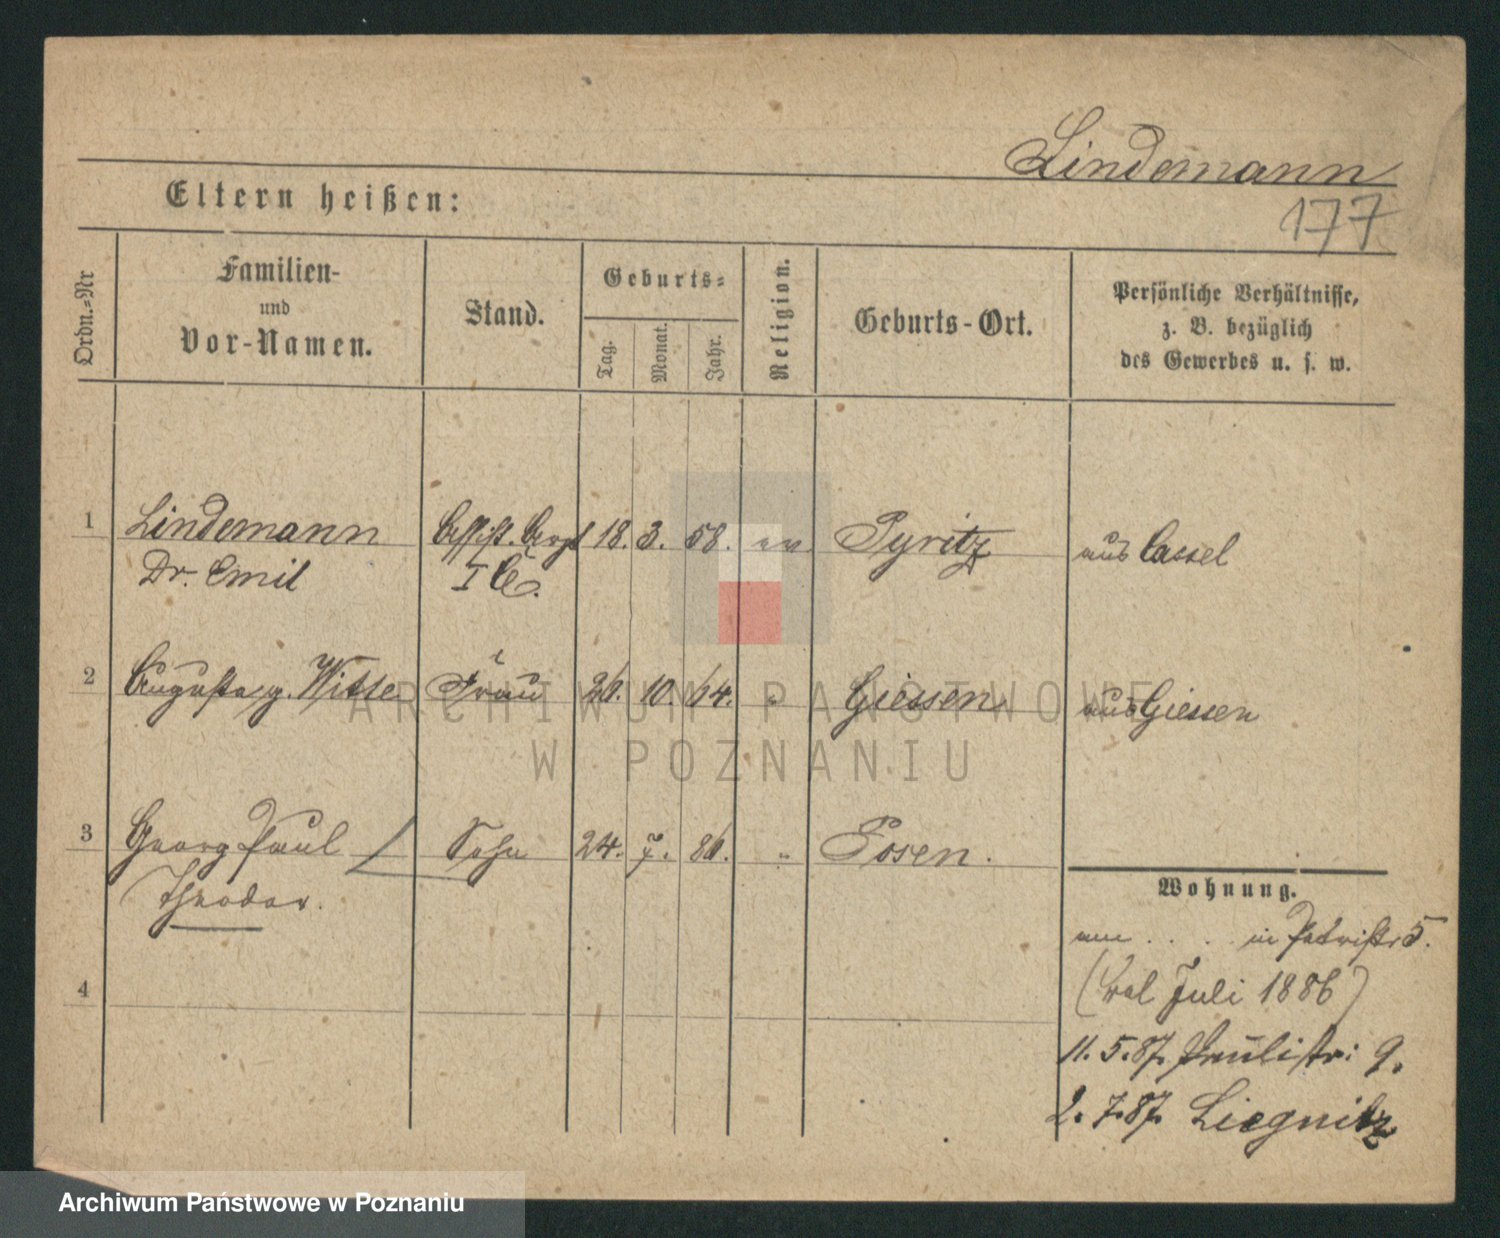 Lindemann
177
Eltern heißen:
Ordn.=Nr
Familien-
und
Vor-Namen.
Stand.
Geburts=
Tag.
Monat.
Jahr.
Religion.
Geburts-Ort.
Persönliche Verhältnisse,
z. B. bezüglich
des Gewerbes u. s. w.
1 Lindemann Assist. Arzt 18. 3. 58. ev. Pyritz aus Cassel
Dr. Emil I Cl.
2 Auguste g. Witte Frau 26. 10. 64. " Giessen aus Giessen
3 Georg Paul Sohn 24. 7. 86. " Posen.
Theodor.
Wohnung.
in Patristr 5.
( Juli 1886)
4
11. 5. 87. Paulistr: 9.
2. 7. 87. Liegnitz
ARCHIWUM PAŃSTWOWE
W POZNANIU
Archiwum Państwowe w Poznaniu